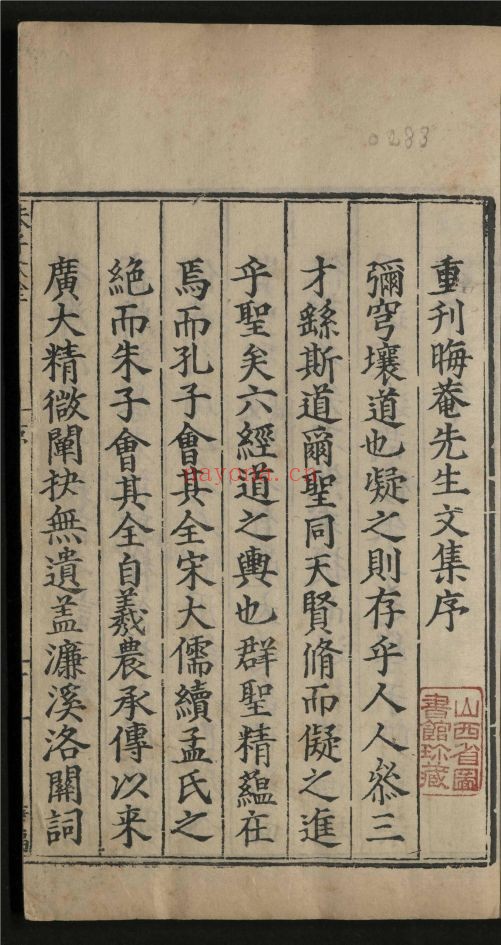 0283
重刊晦菴先生文集序
彌穹壤道也凝之則存乎人人叅三
才繇斯道爾聖同天賢脩而凝之進
乎聖矣六經道之輿也群聖精蘊在
焉而孔子會其全宋大儒續孟氏之
絶而朱子會其全自羲農承傳以来
廣大精微闡抉無遺盖濂溪洛關詞
山西省圖
書館珎藏
nayona.cn